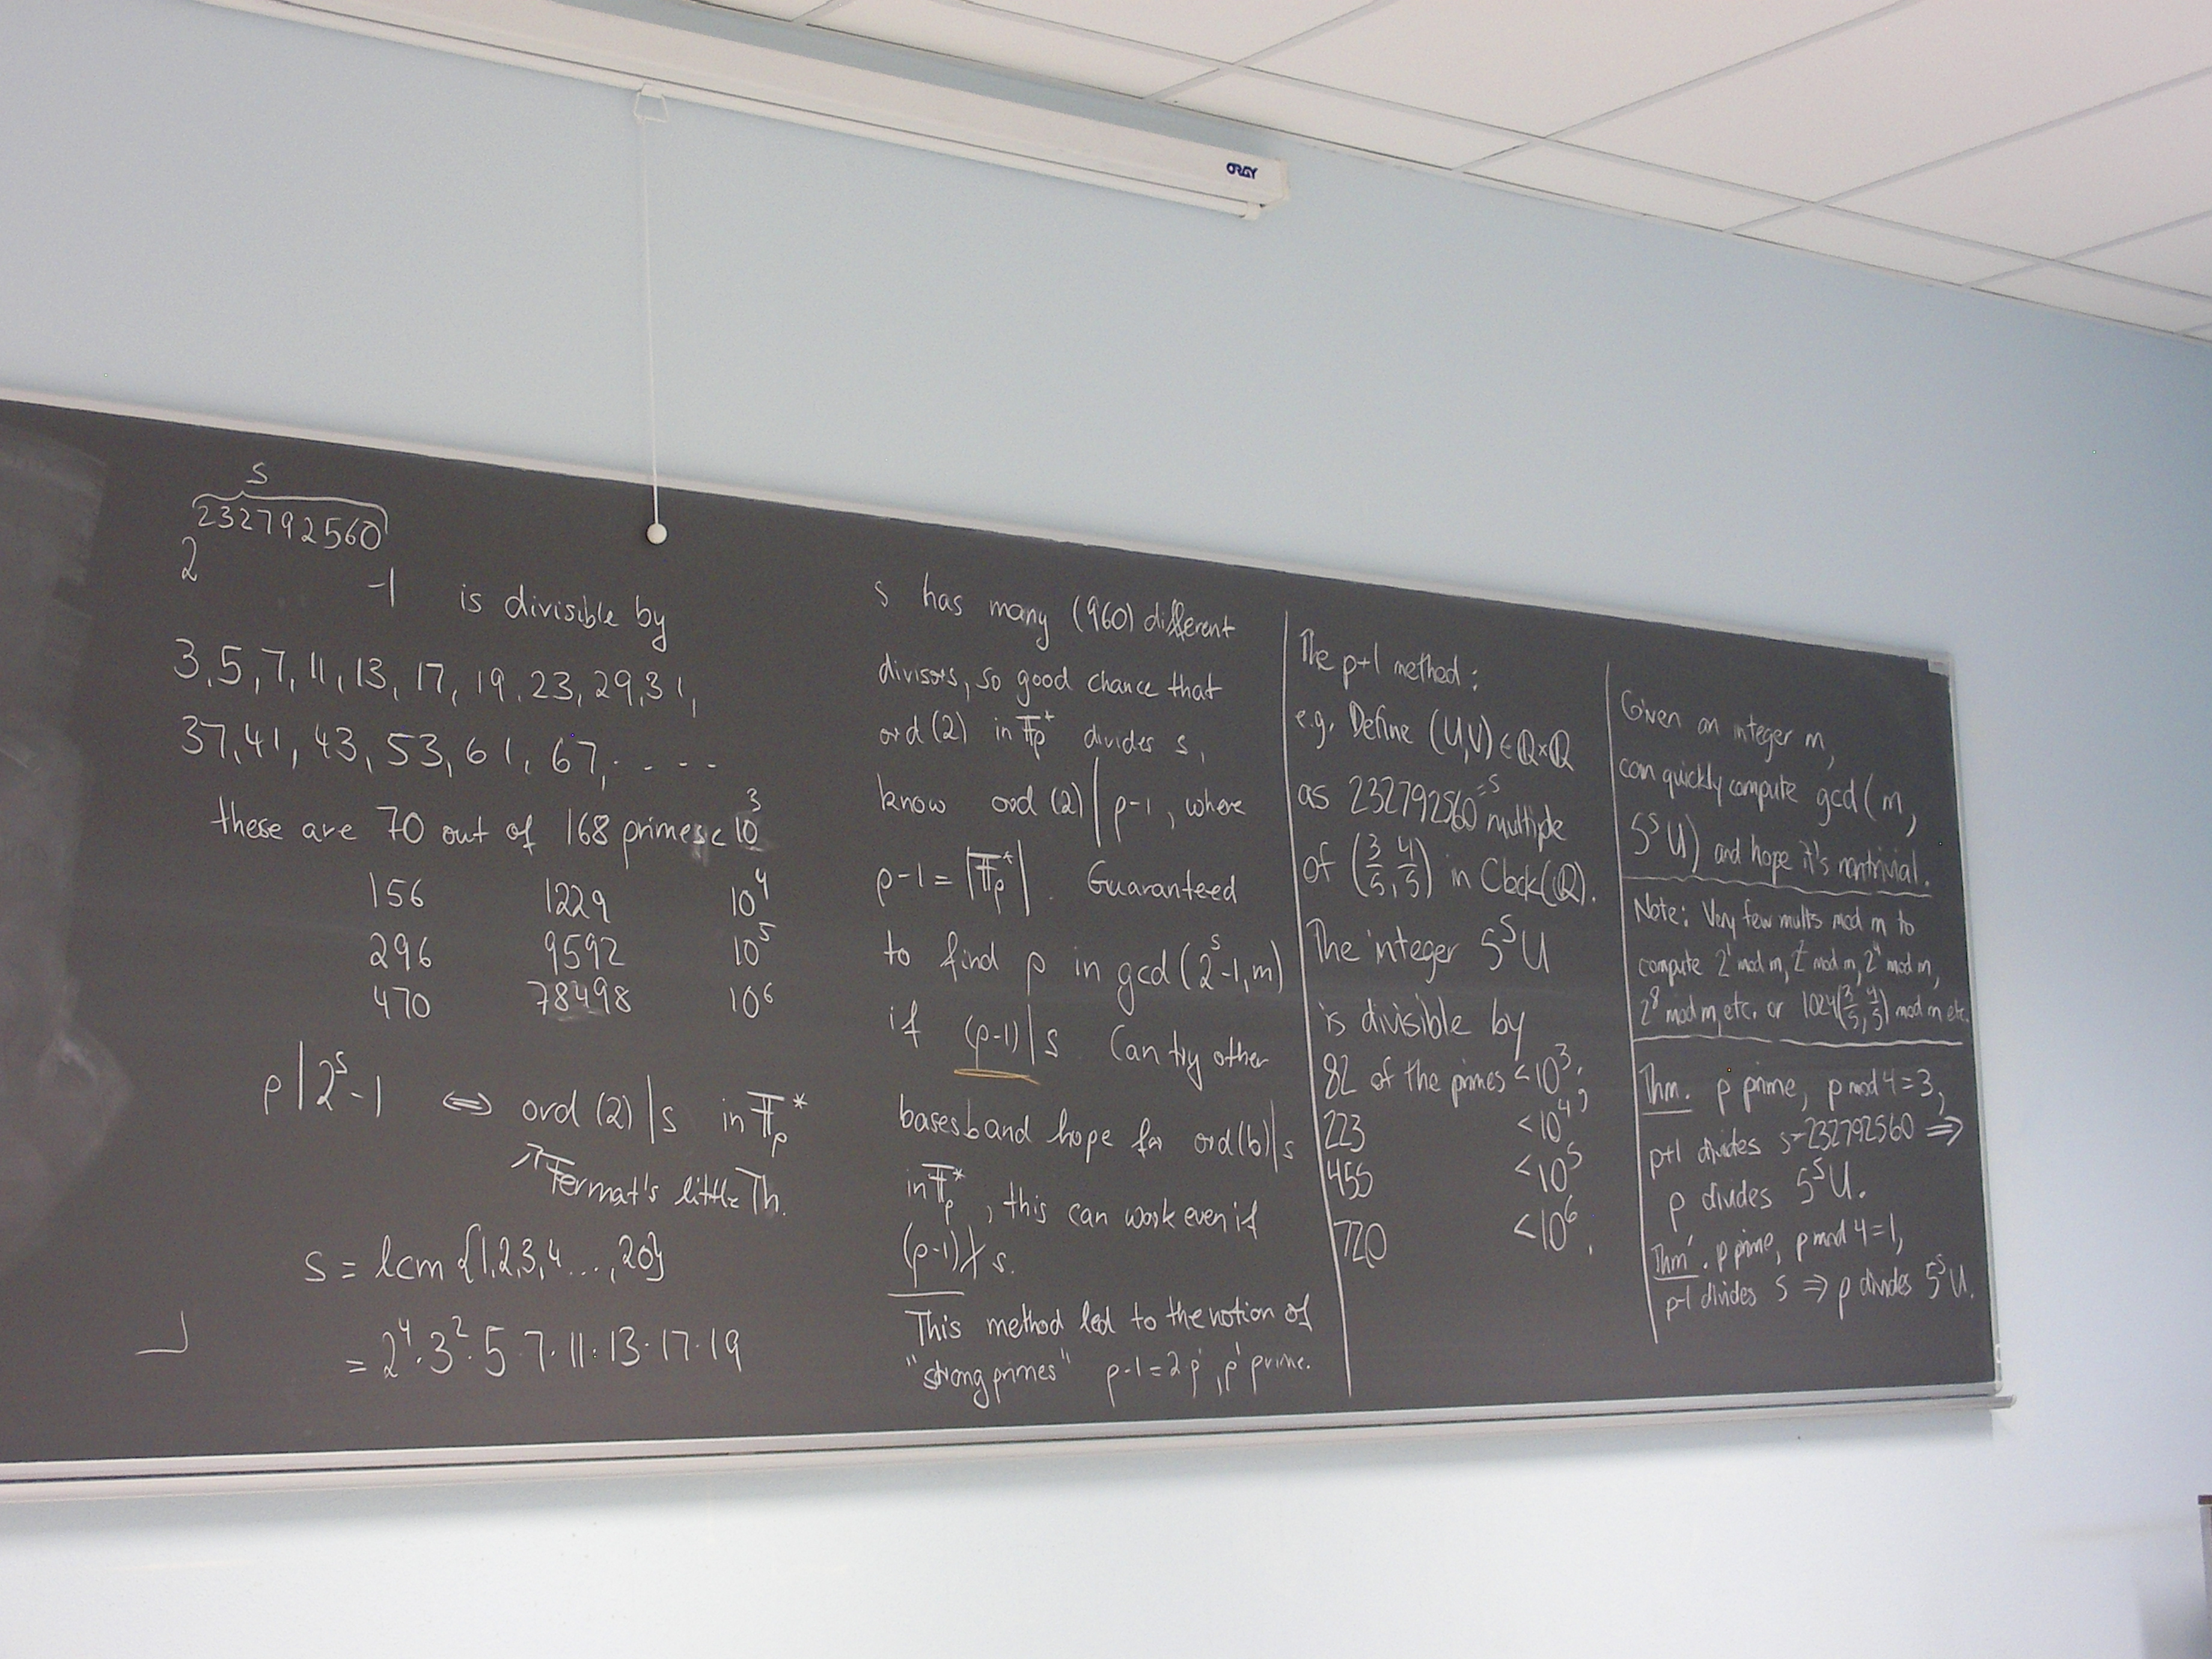 ORAY
s
232792560
2 -1 is divisible by
3,5,7,11,13,17,19,23,29,31,
37,41,43,53,61,67,....
these are 70 out of 168 primes < 10³
156 1229 10⁴
296 9592 10⁵
470 78498 10⁶
p | 2ˢ-1 ⇔ ord (2) | s in 𝔽ₚ*
Fermat's little Th.
s = lcm {1,2,3,4...,20}
= 2⁴·3²·5·7·11·13·17·19
s has many (960) different
divisors, so good chance that
ord (2) in 𝔽ₚ* divides s,
know ord (2) | p-1, where
p-1 = |𝔽ₚ*|. Guaranteed
to find p in gcd(2ˢ-1,m)
if (p-1) | s Can try other
bases b and hope for ord(b) | s
in 𝔽ₚ*, this can work even if
(p-1) ∤ s.
This method led to the notion of
"strong primes" p-1 = 2p', p' prime.
The p+1 method:
e.g. Define (U,V) ∈ ℚ×ℚ
as 232792560 =s multiple
of (3/5, 4/5) in Clock(ℚ).
The integer 5ˢU
is divisible by
82 of the primes < 10³;
223 < 10⁴;
455 < 10⁵
720 < 10⁶.
Given an integer m,
can quickly compute gcd(m,
5ˢU) and hope it's nontrivial.
Note: Very few mults mod m to
compute 2¹ mod m, 2² mod m, 2⁴ mod m,
2⁸ mod m, etc. or 1024(3/5, 4/5) mod m etc.
Thm. p prime, p mod 4 = 3,
p+1 divides s=232792560 ⇒
p divides 5ˢU.
Thm'. p prime, p mod 4 = 1,
p-1 divides s ⇒ p divides 5ˢU.